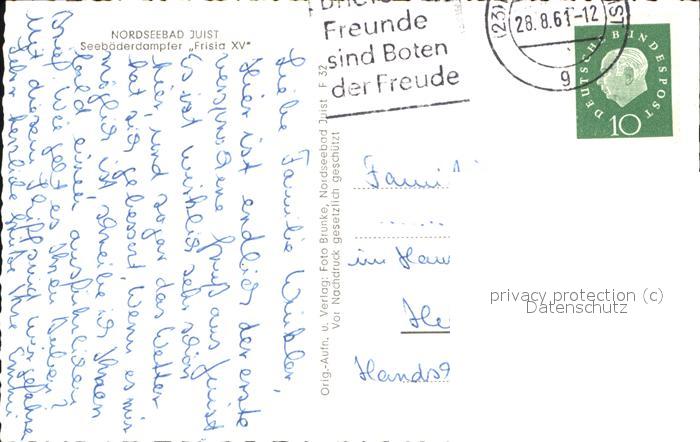 NORDSEEBAD JUIST
Seebäderdampfer „Frisia XV"
Freunde
sind Boten
der Freude
28.8.61-12
g
DEUTSCHE BUNDESPOST
10
Liebe Familie
Hier ist endlich der erste
versprochene Gruß aus Juist
Es ist wirklich sehr schön
hier, und sogar das Wetter
hat sich gebessert. Wenn es mir
möglich ist schreibe ich Ihnen
bald einen ausführlichen
Brief. Wie geht es Ihnen
Mit diesem Schiff sind wir gefahren
Orig.-Aufn. u. Verlag: Foto Brunke, Nordseebad Juist F 32
Vor Nachdruck gesetzlich geschützt
Fami
im Hau
privacy protection (c)
Datenschutz